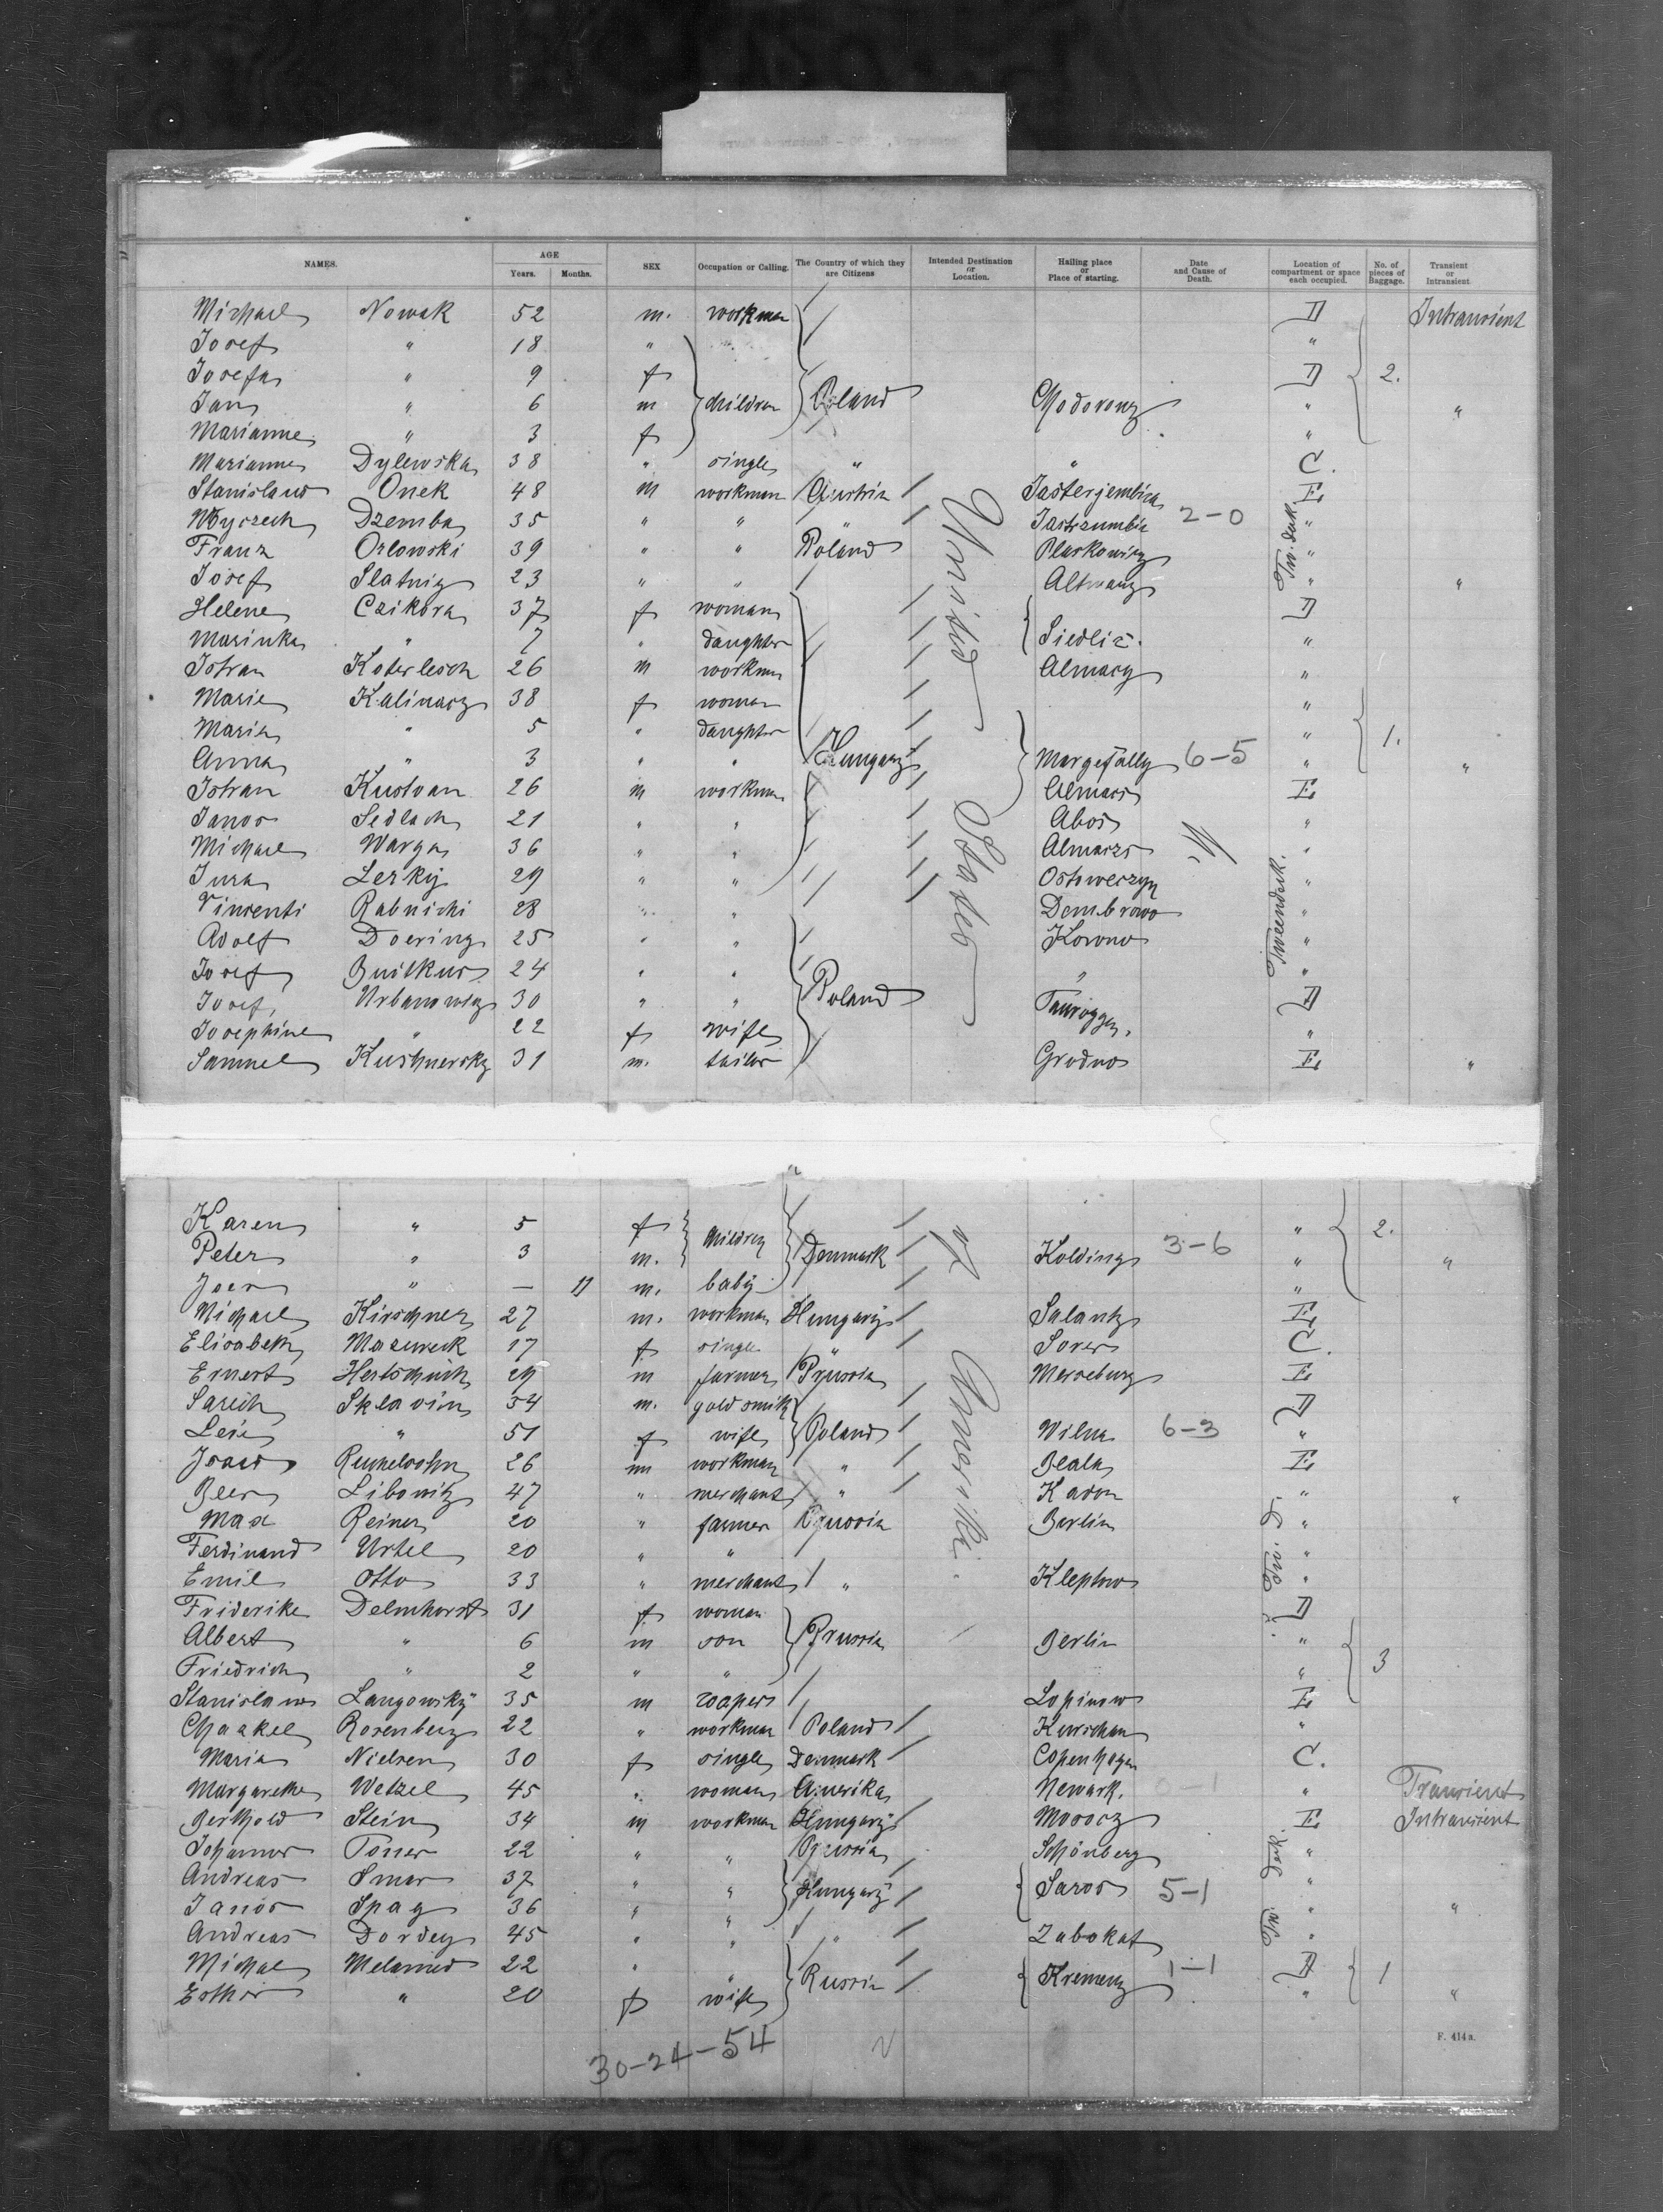 NAMES. AGE SEX Occupation or Calling. The Country of which they are Citizens Intended Destination or Location. Hailing place or Place of starting. Date and Cause of Death. Location of compartment or space each occupied. No. of pieces of Baggage. Transient or Intransient
Years. Months.
Michael Nowak 52 m. workman D Intransient
Josef " 18 " "
Josefa " 9 f D 2.
Jan " 6 m children Poland " "
Marianne " 3 f "
Marianne Dylewska 38 " single " " C.
Stanislaus Onek 48 m workman Austria Jasterjembica E
Woyczech Dzemba 35 " " " Jastrzumbia 2-0 "
Franz Orlowski 39 " " Poland Plaskowicz "
Josef Slatnig 23 " " Altwanz " "
Helene Czikora 37 f woman D
Marinka " 7 " daughter Siedliz. "
Istvan Koterlesch 26 m workman Almacz "
Marie Kalinacz 38 f woman "
Maria " 5 " daughter " 1.
Anna " 3 " " Hungary Margefally 6-5 " "
Istvan Kustvan 26 m workman Almacs E
Janos Sedlach 21 " " Abos "
Michael Warga 36 " " Almaczs "
Jura Lezky 29 " " Ostoweczyn "
Vincenti Rabnichi 28 " " Dembrowo "
Adolf Doering 25 " " Kowno "
Josef Guitkus 24 " " " "
Josef Urbanowicz 30 " " Poland Tauroggen. D
Josephine " 22 f wife "
Samuel Kushnersky 31 m. tailor Grodno E "
United States
Tw. deck
Tweendeck.
Karen " 5 f children " 2.
Peter " 3 m. Denmark Kolding 3-6 " "
" — 11 m. baby "
Michael Kirschner 27 m. workman Hungary Salantz E
Elisabeth Mazureck 17 f single " Sover C.
Ernest Hertschuch 29 m farmer Prussia Merseburg E
Sarich Sklavin 54 m. goldsmith D
Leie " 51 f wife Poland Wilna 6-3 "
26 m workman " Beala E
Beer Libowitz 47 " merchant " Kaon " "
Max Reiner 20 " farmer Prussia Berlin "
Ferdinand Urtel 20 " " "
Emil Otto 33 " merchant " Kleptow "
Friderike Delmhorst 31 f woman D
Albert " 6 m son Prussia Berlin " 3
Friedrich " 2 " " "
Stanislaus Langowsky 35 m Lopinow E
Chaakel Rosenberg 22 " workman Poland Kurschan "
Maria Nielsen 30 f single Denmark Copenhagen C.
Margarethe Wetzel 45 " woman Amerika Newark. 0-1 " Transient
Berthold Stein 34 m workman Hungary Mooocz E Intransient
Johannes Toner 22 " " Prussia Schönberg "
Andreas Smar 37 " " Hungary Saros 5-1 "
Janos Spag 36 " " " "
Andreas Dordey 45 " " " Zabokat "
Michael Melamed 22 " " Russia Kremenz 1-1 D 1
Esther " 20 f wife " "
of Amerika.
Tw. deck
30-24-54
F. 414a.